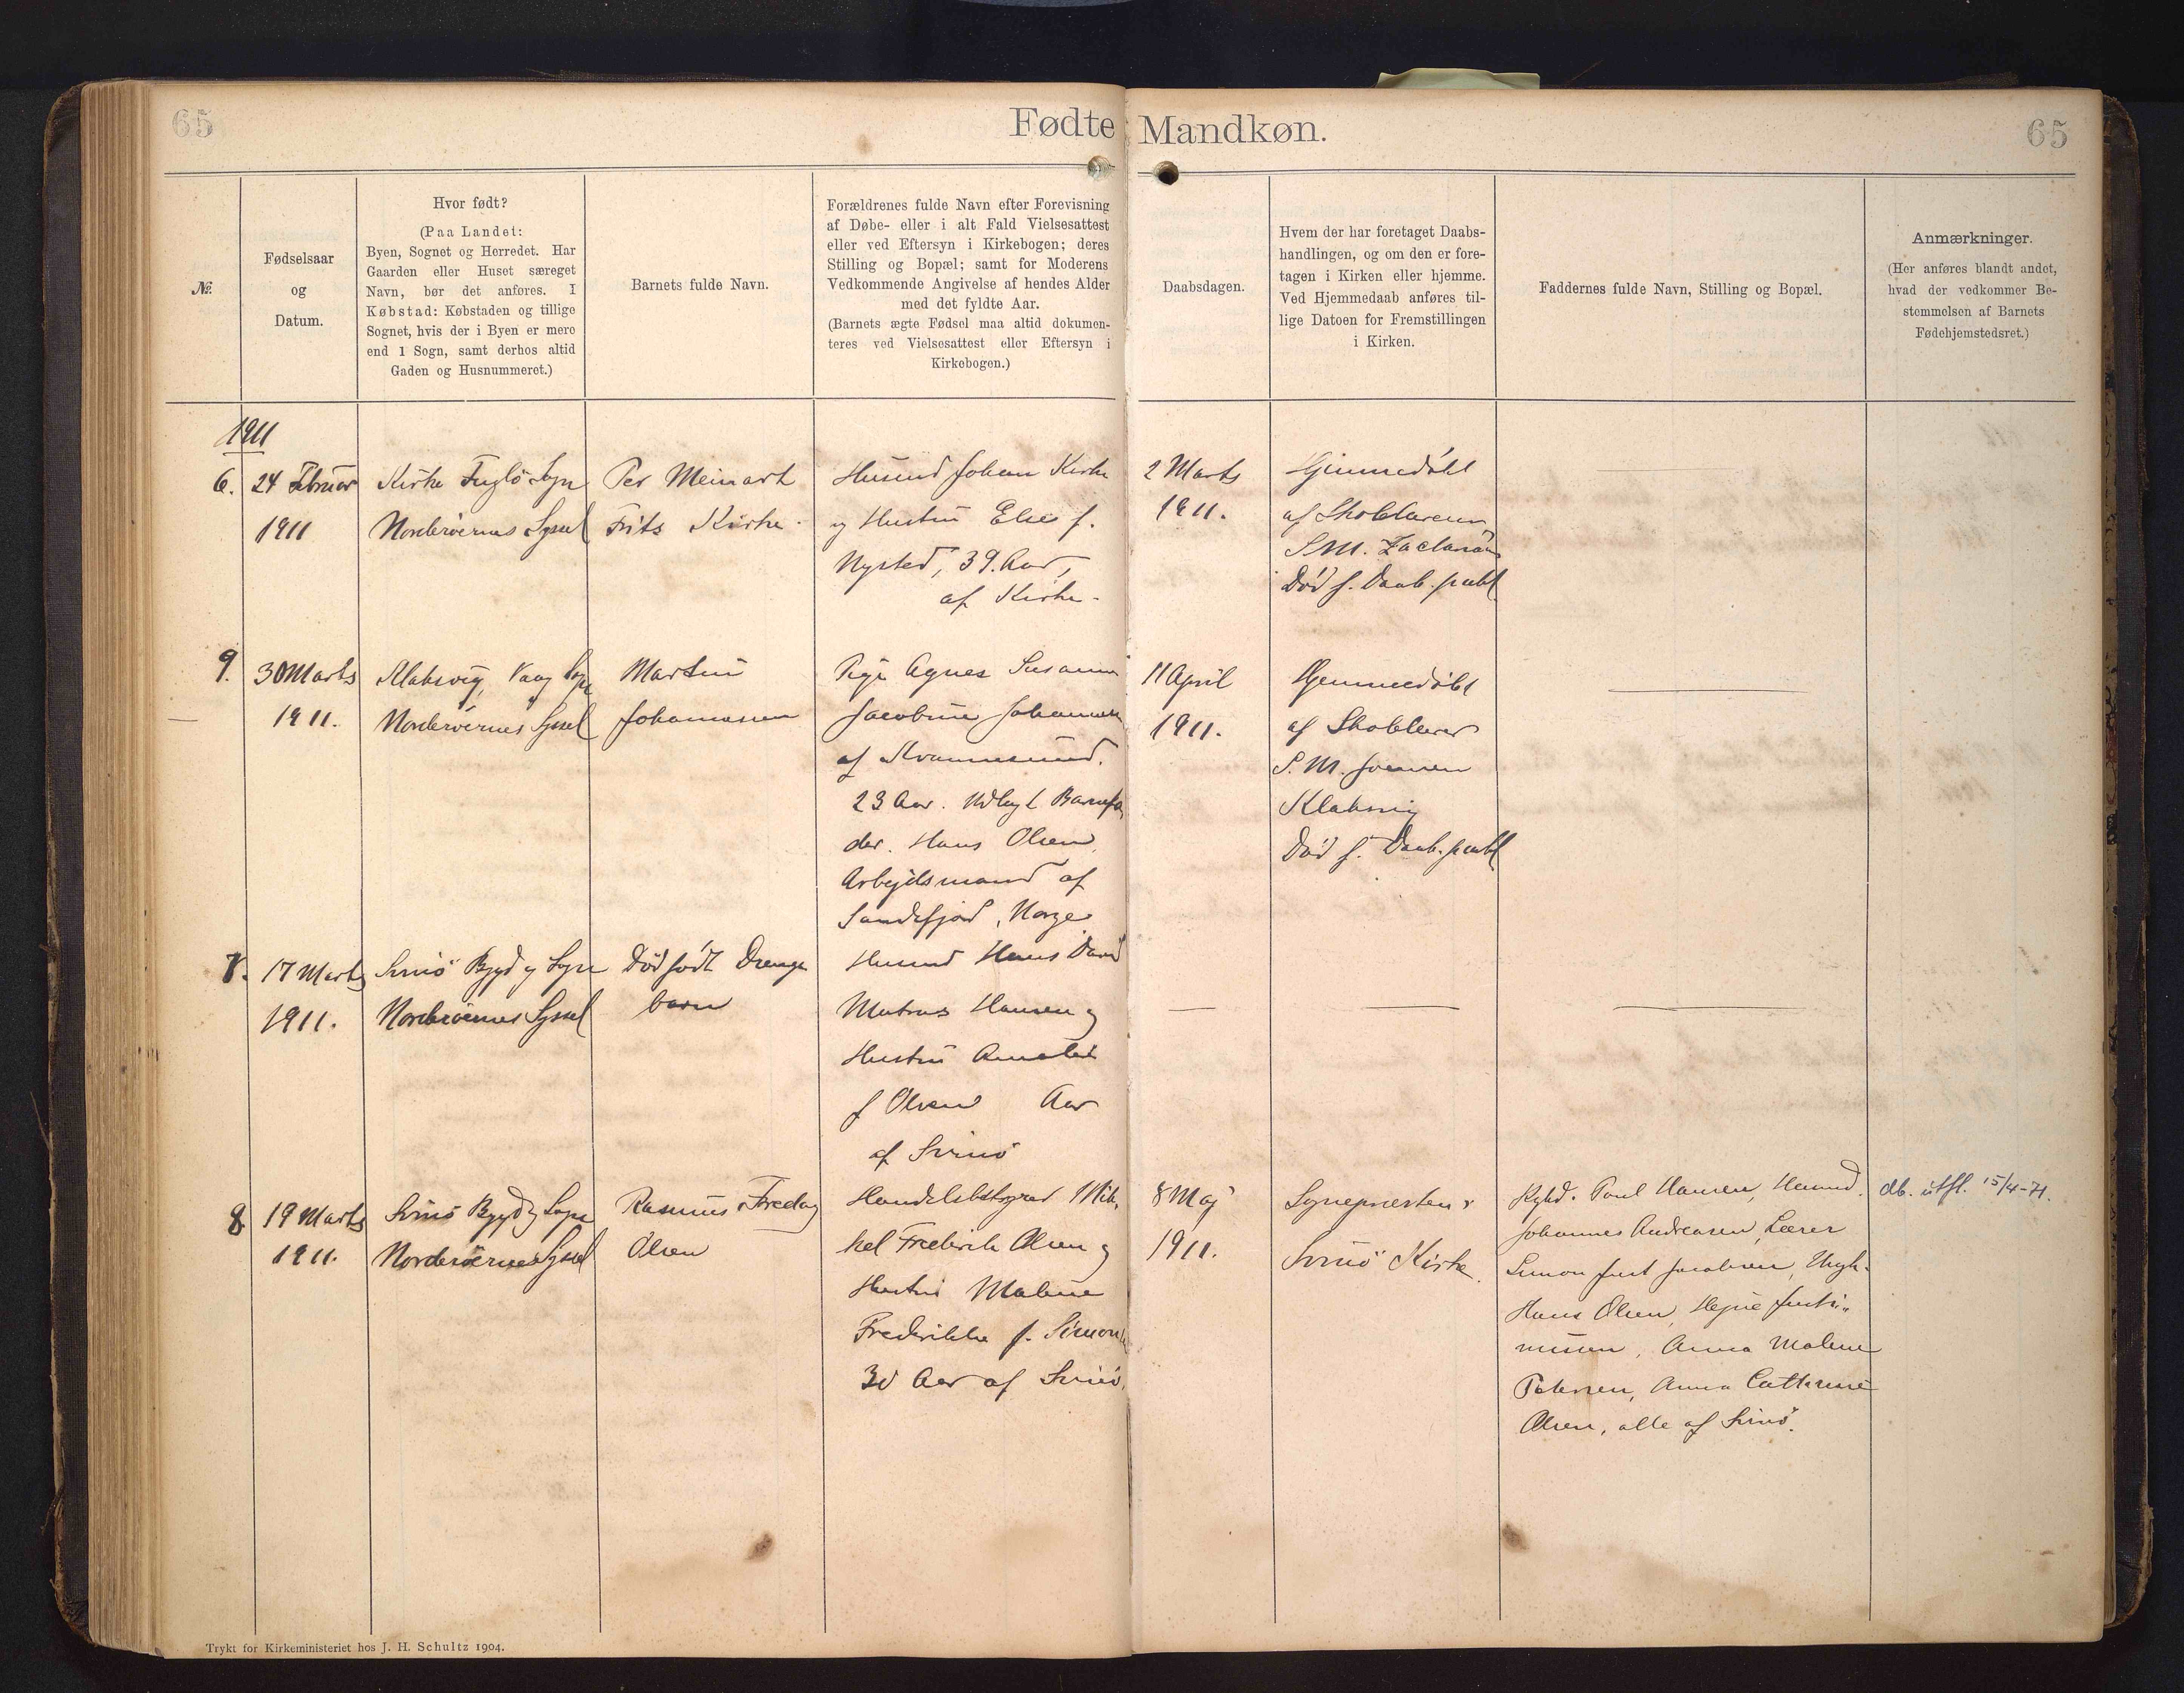 65
Fødte Mandkøn.
65
№.
Fødselsaar
og
Datum.
Hvor født?
(Paa Landet:
Byen, Sognet og Herredet. Har
Gaarden eller Huset særeget
Navn, bør det anføres. I
Købstad: Købstaden og tillige
Sognet, hvis der i Byen er mere
end 1 Sogn, samt derhos altid
Gaden og Husnummeret.)
Barnets fulde Navn.
Forældrenes fulde Navn efter Forevisning
af Døbe- eller i alt Fald Vielsesattest
eller ved Eftersyn i Kirkebogen; deres
Stilling og Bopæl; samt for Moderens
Vedkommende Angivelse af hendes Alder
med det fyldte Aar.
(Barnets ægte Fødsel maa altid dokumen-
teres ved Vielsesattest eller Eftersyn i
Kirkebogen.)
Daabsdagen.
Hvem der har foretaget Daabs-
handlingen, og om den er fore-
tagen i Kirken eller hjemme.
Ved Hjemmedaab anføres til-
lige Datoen for Fremstillingen
i Kirken.
Faddernes fulde Navn, Stilling og Bopæl.
Anmærkninger.
(Her anføres blandt andet,
hvad der vedkommer Be-
stemmelsen af Barnets
Fødehjemstedsret.)
1911
6.
24 Februar
1911
Kirke Fuglö Sogn
Norderöernes Syssel
Per Meinart
Frits Kirke.
Husmd Johan Kirke
og Hustru Else f.
Nysted, 39. Aar,
af Kirke.
2 Marts
1911.
Hjemmedöbt
af Skolelæreren
S.M. Zacharias
Död f. Daab. publ.
9.
30 Marts
1911.
Klaksvig, Vaag Sogn
Norderöernes Syssel
Martin
Johannesen
Pige Agnes Susanne
Jacobine Johannesen
af Kvannesund.
23 Aar. Udlagt Barnefa
der. Hans Olsen
Arbejdsmand af
Sandefjord, Norge
11 April
1911.
Hjemmedöbt
af Skolelærer
S. M. Joensen
Klaksvig
Död f. Daab. publ
7.
17 Marts
1911.
Svinö Bygd og Sogn
Norderöernes Syssel
Dödfödt Drenge
barn
Husmd Hans David
Mutras Hansen og
Hustru
f Olsen Aar
af Svinö
8
19 Marts
1911.
Svinö Bygd og Sogn
Norderöernes Syssel
Rasmus Fredag
Olsen
Handelsbestyrer Mik-
kel Frederik Olsen og
Hustru Malene
Frederikke f. Simonsen
30 Aar af Svinö.
8 Maj
1911.
Sognepræsten i
Svinö Kirke.
Poul Hansen, Husmd.
Johannes Andreasen, Lærer
Simon Just Jacobsen, Ungk.
Hans Olsen, Justi-
nussen, Anna Malene
Petersen, Anna Cathrine
Olsen, alle af Svinö.
db. útfl. 15/4-71.
Trykt for Kirkeministeriet hos J. H. Schultz 1904.